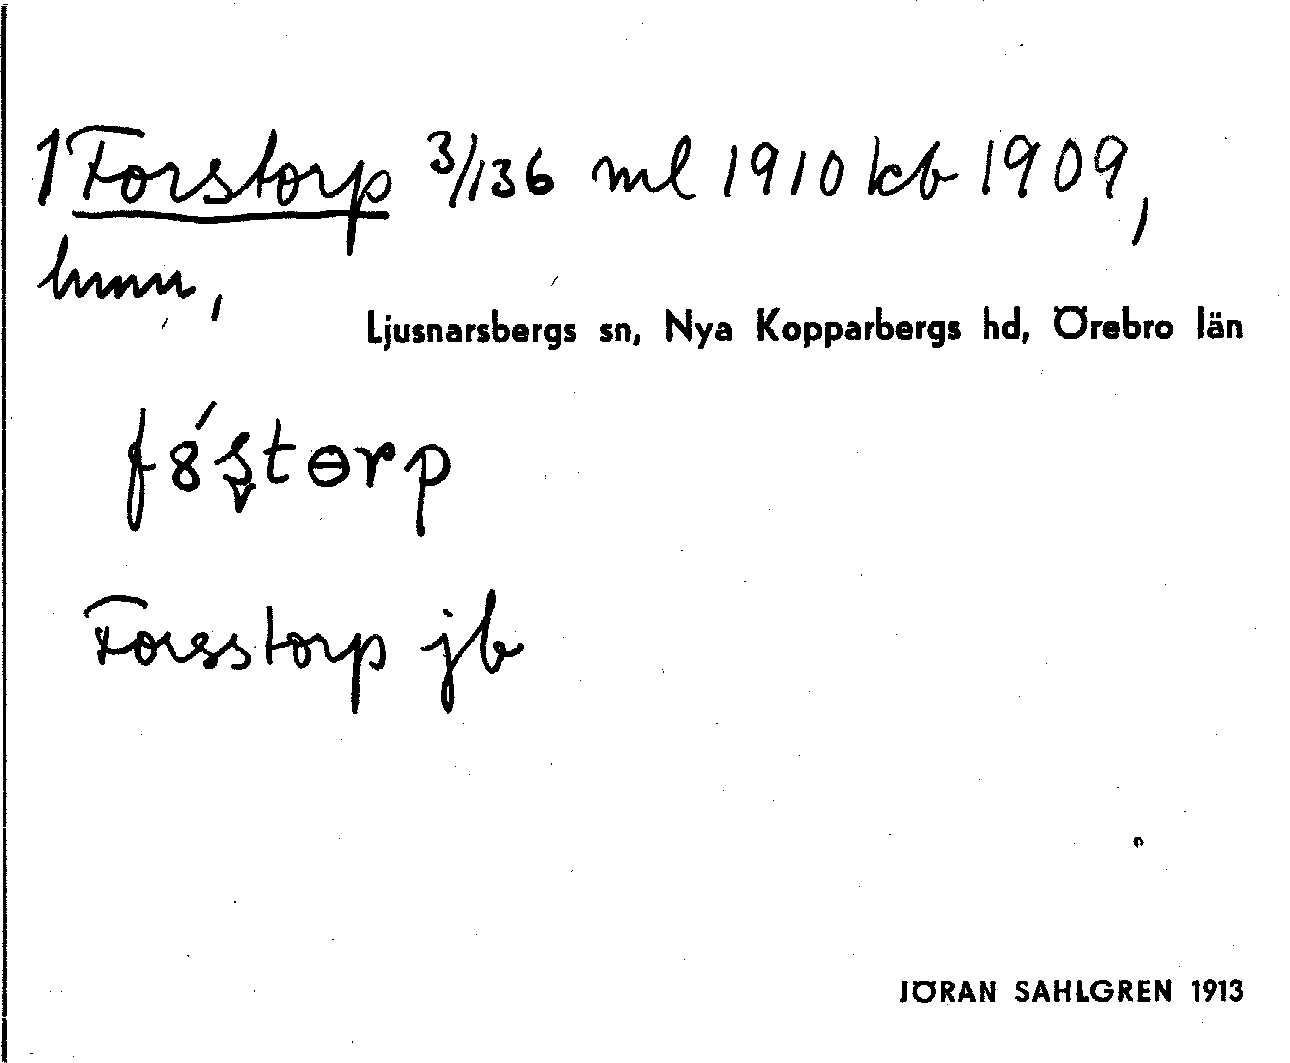 1 Forstorp 3/136 ml 1910 kb 1909,
hmn,
Ljusnarsbergs sn, Nya Kopparbergs hd, Örebro län
Forsstorp jb
JÖRAN SAHLGREN 1913